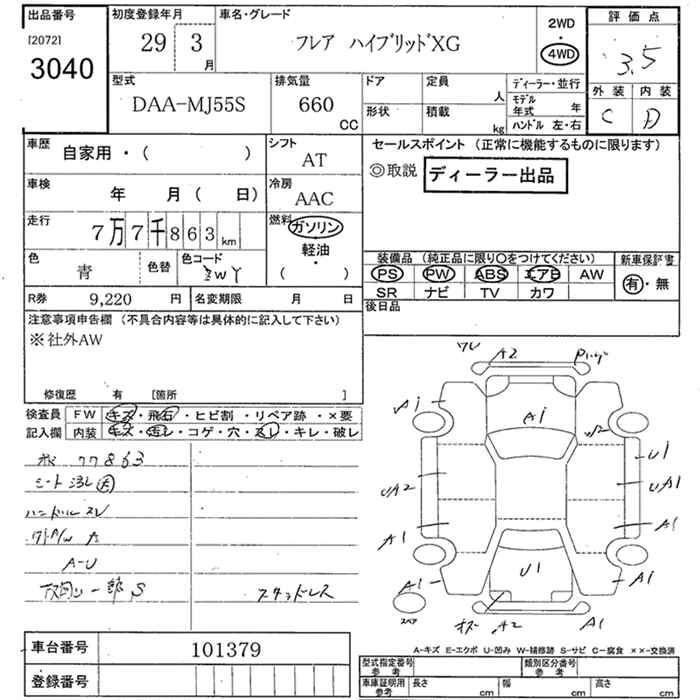 出品番号
[2072]
3040
初度登録年月
29 3 月
車名・グレード
フレア ハイブリッドXG
2WD
・
4WD
評価点
3.5
外装 内装
C D
型式
DAA-MJ55S
排気量
660 CC
ドア
定員 人
形状
積載 kg
ディーラー・並行
モデル年式 年
ハンドル 左・右
車歴
自家用・( )
シフト
AT
車検
年 月( 日)
冷房
AAC
走行
7万7千863km
燃料
ガソリン
軽油・
( )
色
青
色替
色コード
ZWY
R券 9,220 円
名変期限 月 日
セールスポイント (正常に機能するものに限ります)
◎取説 ディーラー出品
装備品 (純正品に限り○をつけてください)
PS PW ABS エアB AW
SR ナビ TV カワ
新車保証書
有・無
後日品
注意事項申告欄 (不具合内容等は具体的に記入して下さい)
※社外AW
修復歴 有 [箇所 ]
検査員記入欄
FW キズ・飛石・ヒビ割・リペア跡・×要
内装 キズ・汚レ・コゲ・穴・スレ・キレ・破レ
77863
シート
ハンドルスレ
A-U
下廻り一部S
スタッドレス
ワレ A2
A1
A1
U1
UA2
UA1
A1
A1
U1
A1
A1
A2
A1
スペア
A-キズ E-エクボ U-凹み W-補修跡 S-サビ C-腐食 ××-交換済
車台番号 101379
登録番号
型式指定番号 参考
類別区分番号 参考
車庫証明用 参考
長さ cm
幅 cm
高さ cm